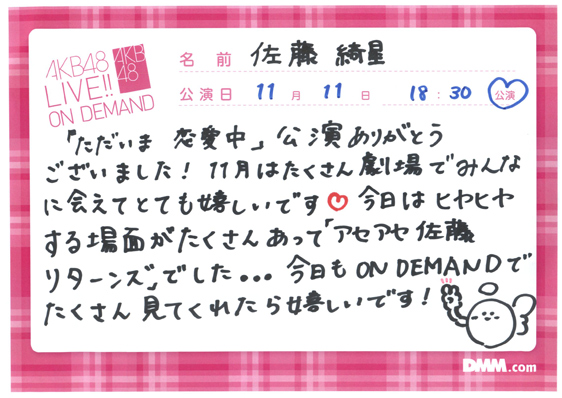 AKB48
LIVE!!
ON DEMAND
AKB
48
名前 佐藤 綺星
公演日 11月11日 18:30 公演
「ただいま 恋愛中」公演ありがとう
ございました！11月はたくさん劇場でみんな
に会えてとても嬉しいです♡ 今日はヒヤヒヤ
する場面がたくさんあって「アセアセ佐藤
リターンズ」でした... 今日もON DEMANDで
たくさん見てくれたら嬉しいです！
DMM.com